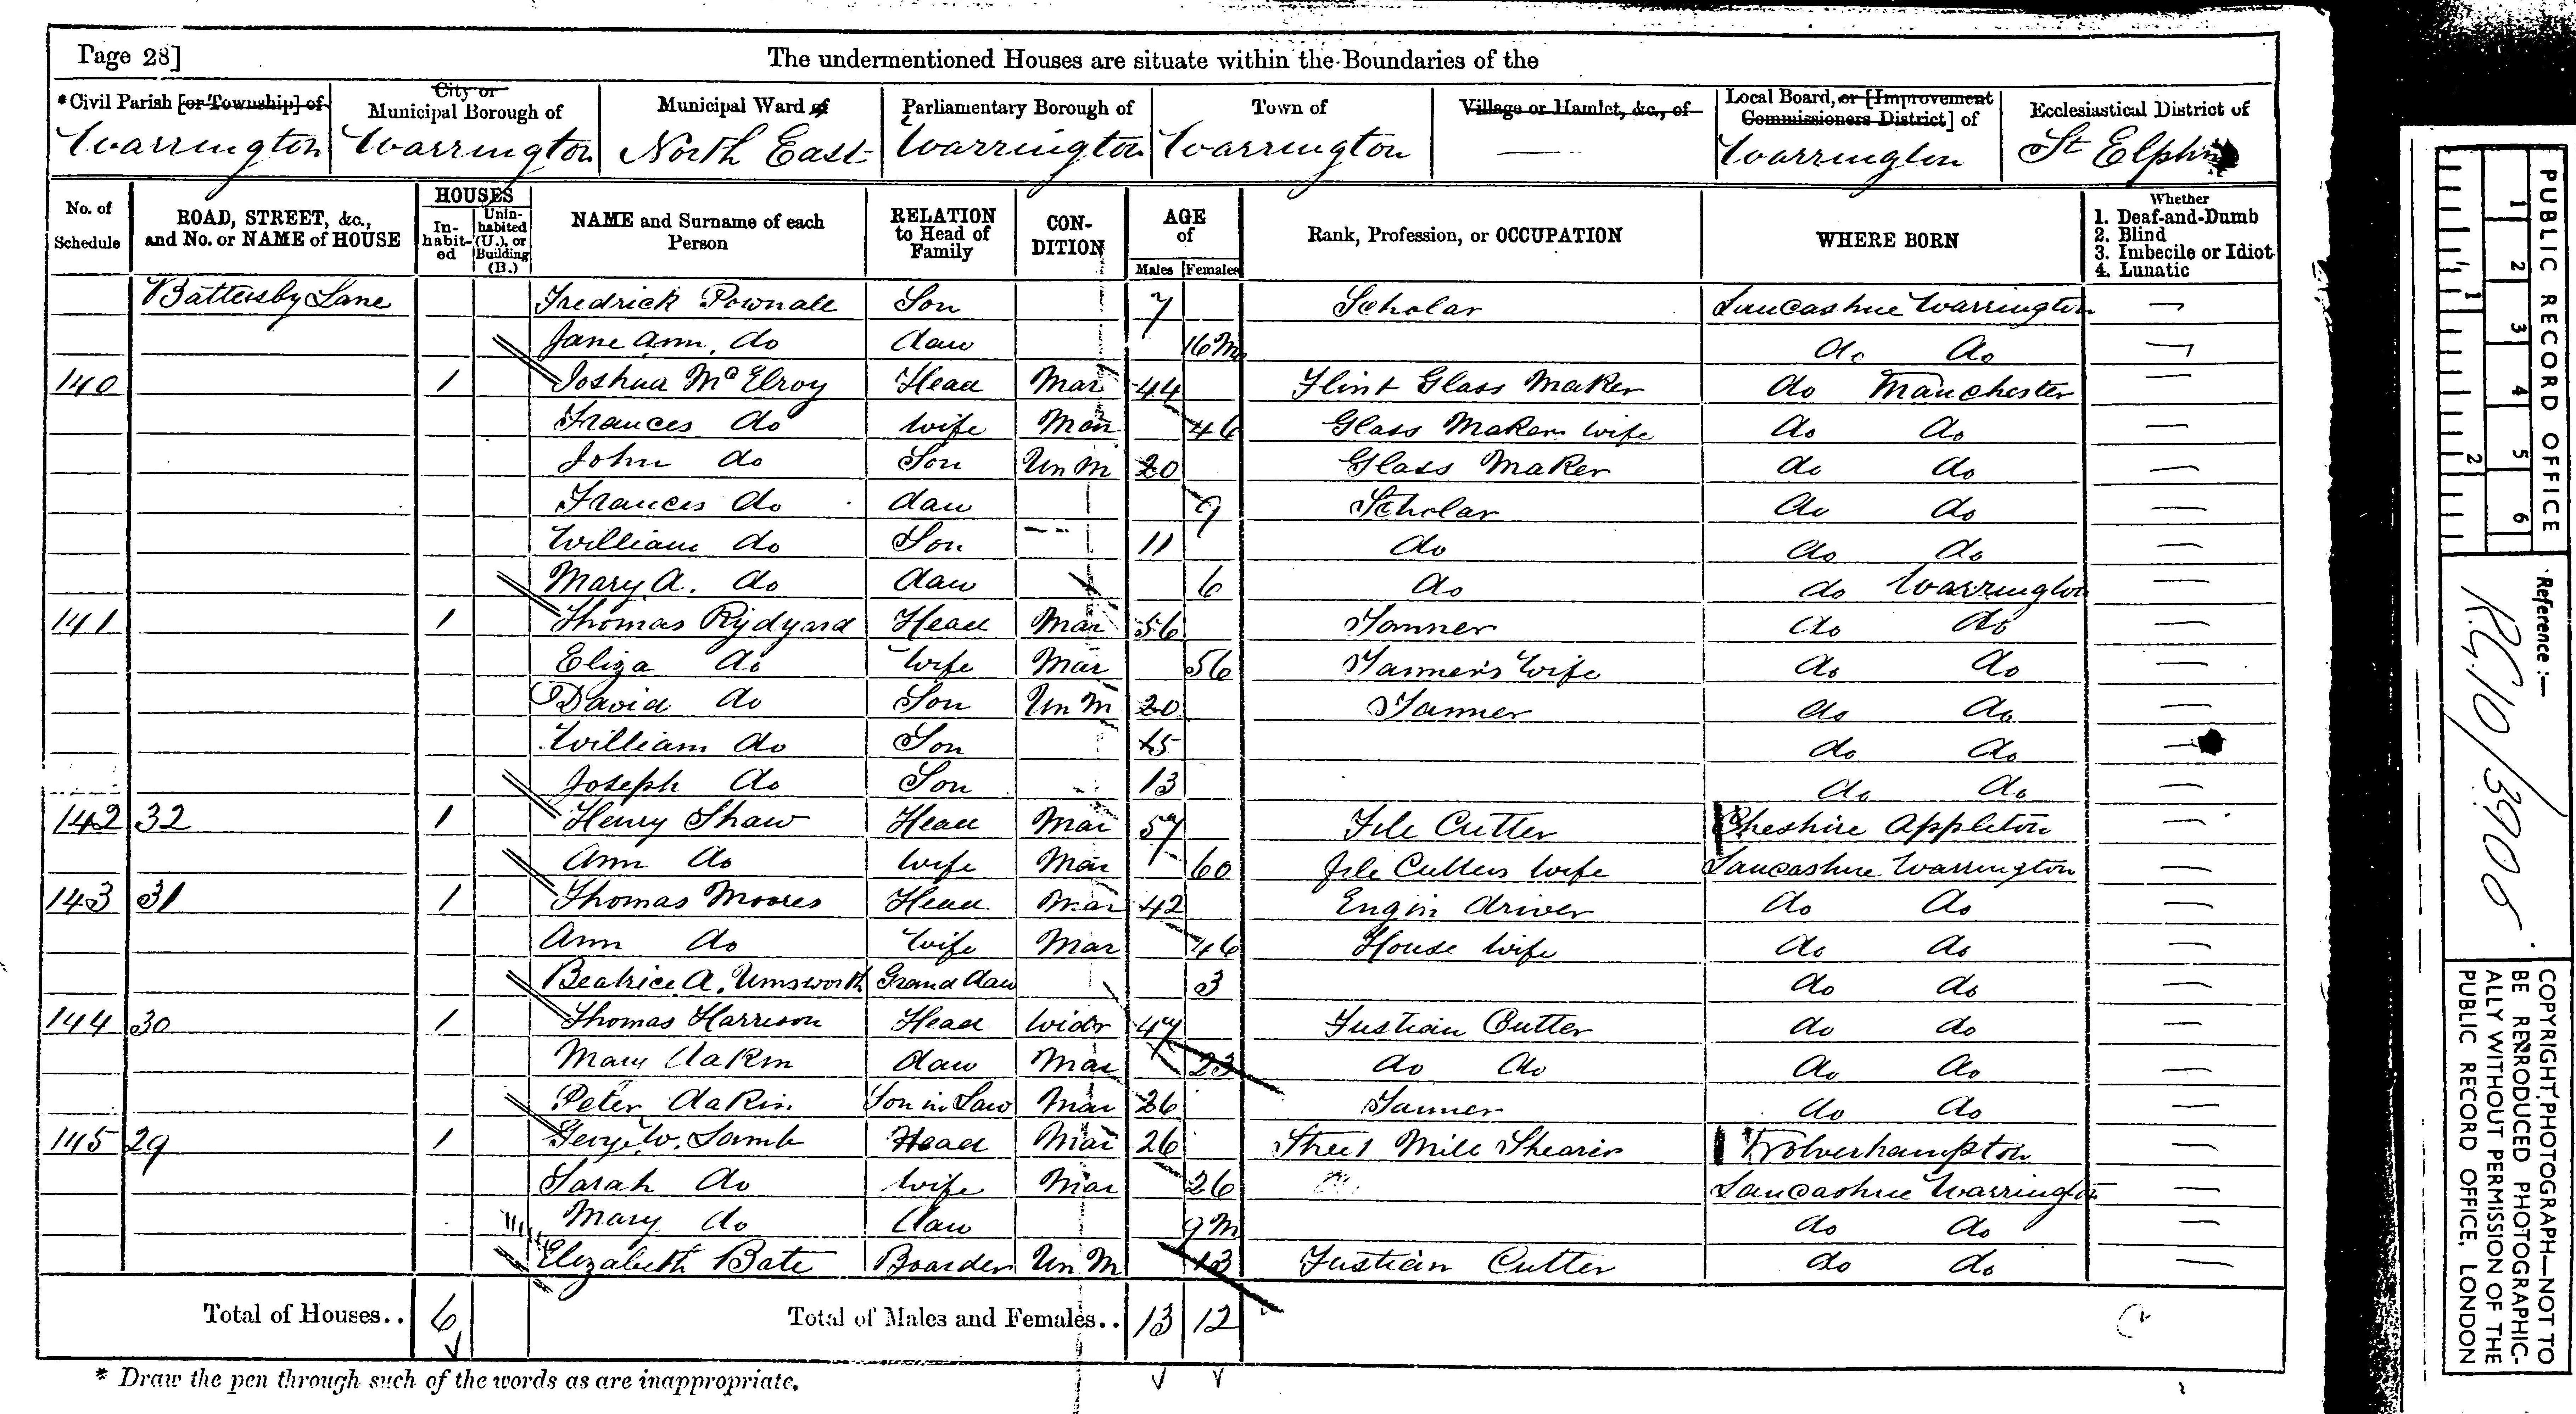 Page 28]
The undermentioned Houses are situate within the Boundaries of the
*Civil Parish [or Township] of Warrington
City or Municipal Borough of Warrington
Municipal Ward of North East
Parliamentary Borough of Warrington
Town of Warrington
Village or Hamlet, &c., of —
Local Board, or [Improvement Commissioners District] of Warrington
Ecclesiastical District of St Elphin
No. of Schedule
ROAD, STREET, &c., and No. or NAME of HOUSE
HOUSES
In-habit-ed
Unin-habited (U.), or Building (B.)
NAME and Surname of each Person
RELATION to Head of Family
CON-DITION
AGE of
Males Females
Rank, Profession, or OCCUPATION
WHERE BORN
Whether
1. Deaf-and-Dumb
2. Blind
3. Imbecile or Idiot
4. Lunatic
Battersby Lane Fredrick Pownall Son 7 Scholar Lancashire Warrington —
Jane Ann do daw 16 M do do —
140 1 Joshua McElroy Head Mar 44 Flint Glass Maker do Manchester —
Frances do wife Mar 46 Glass Makers wife do do —
John do Son Un M 20 Glass Maker do do —
Frances do daw 9 Scholar do do —
William do Son 11 do do do —
Mary A. do daw 6 do do Warrington —
141 1 Thomas Rydyard Head Mar 56 Tanner do do —
Eliza do Wife Mar 56 Tanner's Wife do do —
David do Son Un M 20 Tanner do do —
William do Son 15 do do —
Joseph do Son 13 do do —
142 32 1 Henry Shaw Head Mar 57 File Cutter Cheshire Appleton —
Ann do wife Mar 60 file Cutters wife Lancashire Warrington —
143 31 1 Thomas Moores Head Mar 42 Engin driver do do —
Ann do Wife Mar 46 House wife do do —
Beatrice A. Umsworth Grand daw 3 do do —
144 30 1 Thomas Harrison Head Widr 47 Fustian Cutter do do —
Mary dakin daw Mar 23 do do do do —
Peter dakin Son in Law Mar 26 Tanner do do —
145 29 1 W. Lamb Head Mar 26 Mill Shearer Wolverhampton —
Sarah do wife Mar 26 Lancashire Warrington —
Mary do daw 9 M do do —
Elizabeth Bate Boarder Un M 13 Fustian Cutter do do —
Total of Houses.. 6
Total of Males and Females.. 13 12
* Draw the pen through such of the words as are inappropriate.
PUBLIC RECORD OFFICE
1 2 3 4 5 6
1 2
Reference :—
R.G. 10/3905
COPYRIGHT PHOTOGRAPH—NOT TO
BE REPRODUCED PHOTOGRAPHIC-
ALLY WITHOUT PERMISSION OF THE
PUBLIC RECORD OFFICE, LONDON